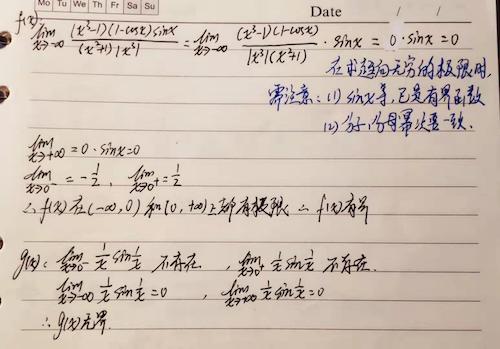 Mo Tu We Th Fr Sa Su
Date / /
f(x): lim x→-∞ (x³-1)(1-cosx)sinx / (x²+1)|x³| = lim x→-∞ (x³-1)(1-cosx) / |x³|(x²+1) · sinx = 0 · sinx = 0
在求趋向无穷的极限时,
需注意: (1) sinx等, 已是有界函数
(2) 分子、分母幂次要一致.
lim x→+∞ = 0 · sinx = 0
lim x→0⁻ = -1/2, lim x→0⁺ = 1/2
∴ f(x) 在 (-∞, 0) 和 (0, +∞) 上都有极限 ∴ f(x)有界
g(x): lim x→0⁻ 1/x sin 1/x 不存在, lim x→0⁺ 1/x sin 1/x 不存在.
lim x→-∞ 1/x sin 1/x = 0, lim x→+∞ 1/x sin 1/x = 0
∴ g(x)无界.